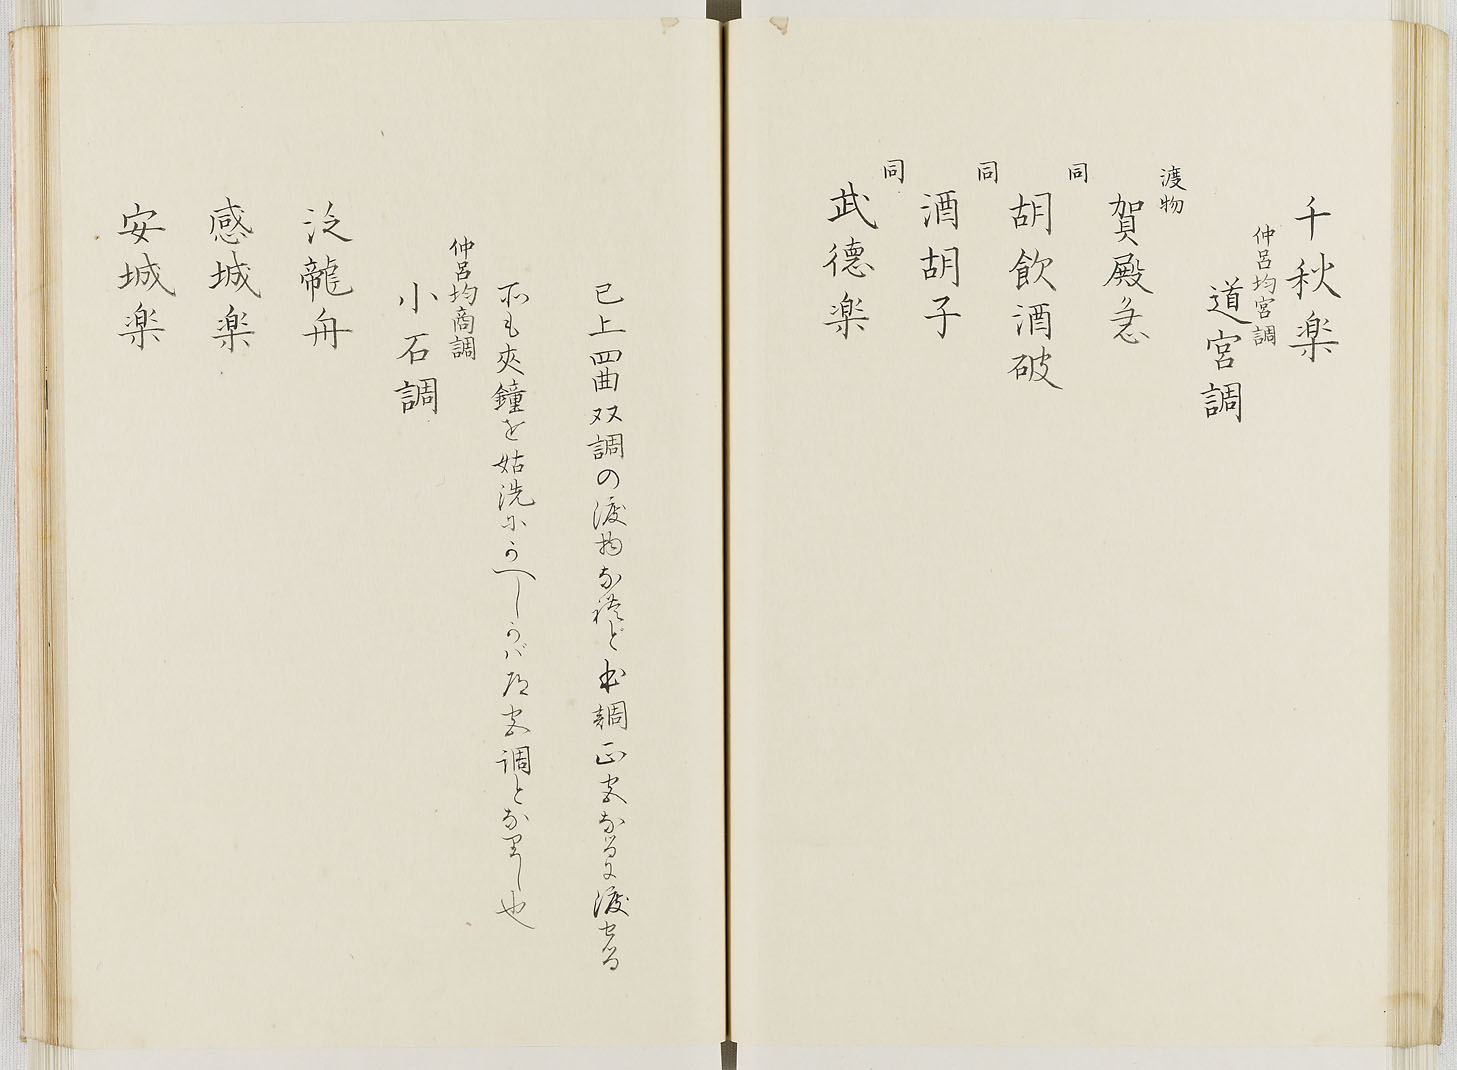 千秋楽
仲呂均宮調
道宮調
渡物
賀殿急
同
胡飲酒破
同
酒胡子
同
武徳楽
已上四曲双調の渡物なれど本調正宮なるに渡せる
所も夾鐘を姑洗にかへしかバ道宮調となりし也
仲呂均商調
小石調
泛龍舟
感城楽
安城楽